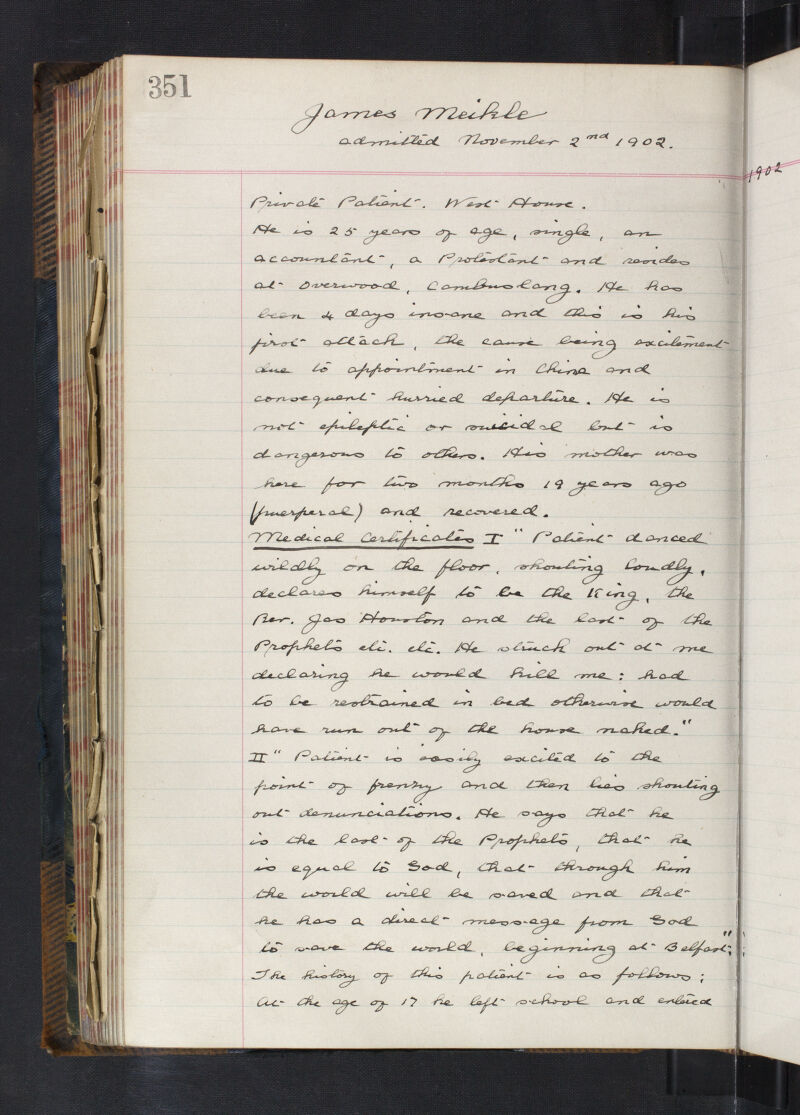 351
James Meikle
admitted November 2nd 1902.
1902
Private Patient. West House.
He is 25 years of age, single, an
accountant, a Protestant and resides
at Overwood, Cambuslang. He has
been 4 days insane and this is his
first attack, the cause being excitement
due to appointment in China and
consequent hurried departure. He is
not epileptic or suicidal but is
dangerous to others. His mother was
here for two months 19 years ago
(puerperal) and recovered.
Medical Certificates I "Patient danced
wildly on the floor, shouting loudly,
declares himself to be the King, the
Rev. Jas Houston and the last of the
Prophets etc. etc. He struck out at me
declaring he would kill me: had
to be restrained in bed otherwise would
have run out of the house naked."
II "Patient is easily excited to the
point of frenzy and then lies shouting
out denunciations. He says that he
is the last of the Prophets, that he
is equal to God, that through him
the world will be saved and that
he has a direct message from God
to save the world, beginning at Belfast";
The history of this patient is as follows:
At the age of 17 he left school and entered